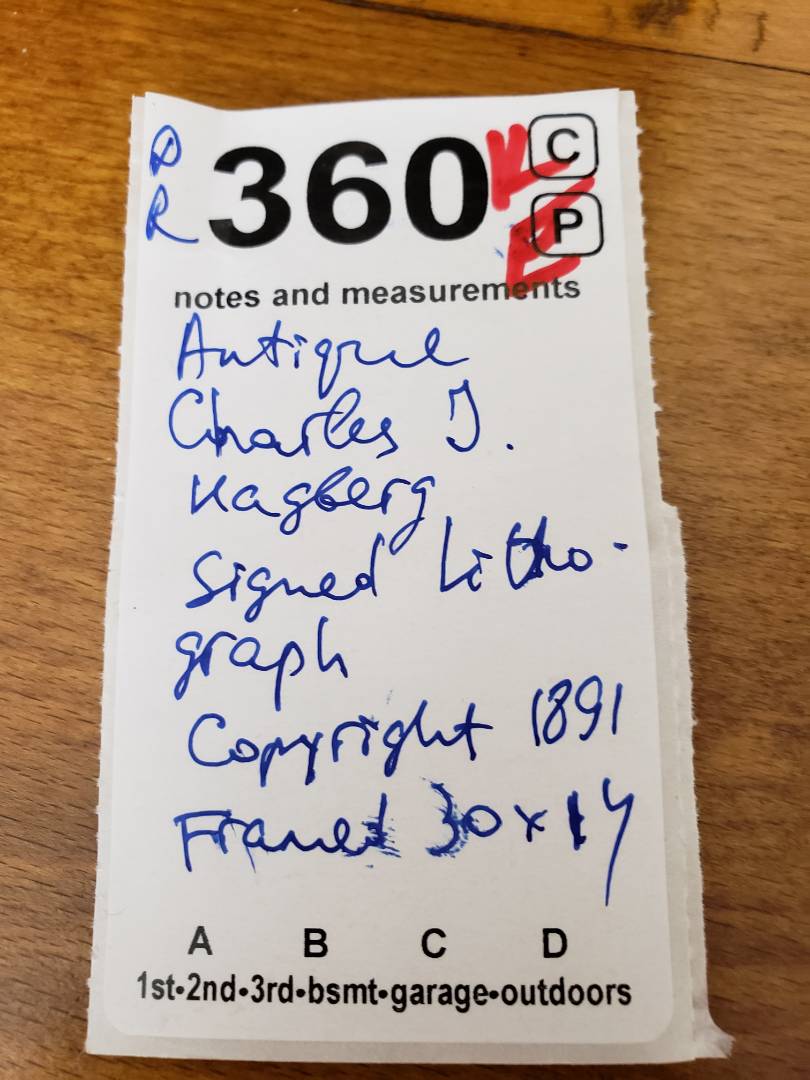 DR 360 C
P
notes and measurements
Antique
Charles J.
Hagberg
Signed Litho-
graph
Copyright 1891
Framed 30x14
A B C D
1st•2nd•3rd•bsmt•garage•outdoors